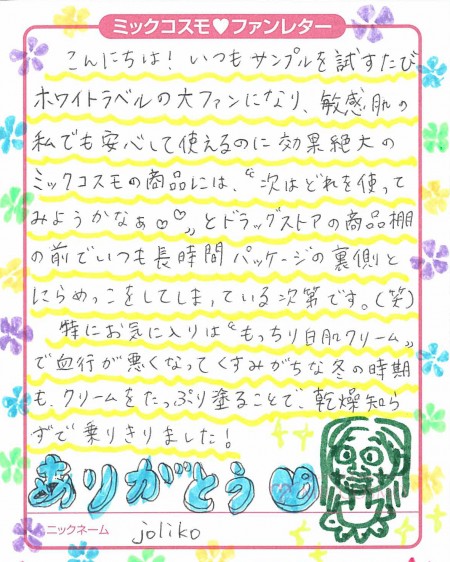 ミックコスモ♥ファンレター
こんにちは！いつもサンプルを試すたび
ホワイトラベルの大ファンになり、敏感肌の
私でも安心して使えるのに効果絶大の
ミックコスモの商品には、“次はどれを使って
みようかなぁ♡♡„とドラッグストアの商品棚
の前でいつも長時間パッケージの裏側と
にらめっこをしてしまっている次第です。(笑)
特にお気に入りは“もっちり白肌クリーム„
で血行が悪くなってくすみがちな冬の時期
も、クリームをたっぷり塗ることで、乾燥知ら
ずで乗りきりました！
ありがとう
ニックネーム joliko